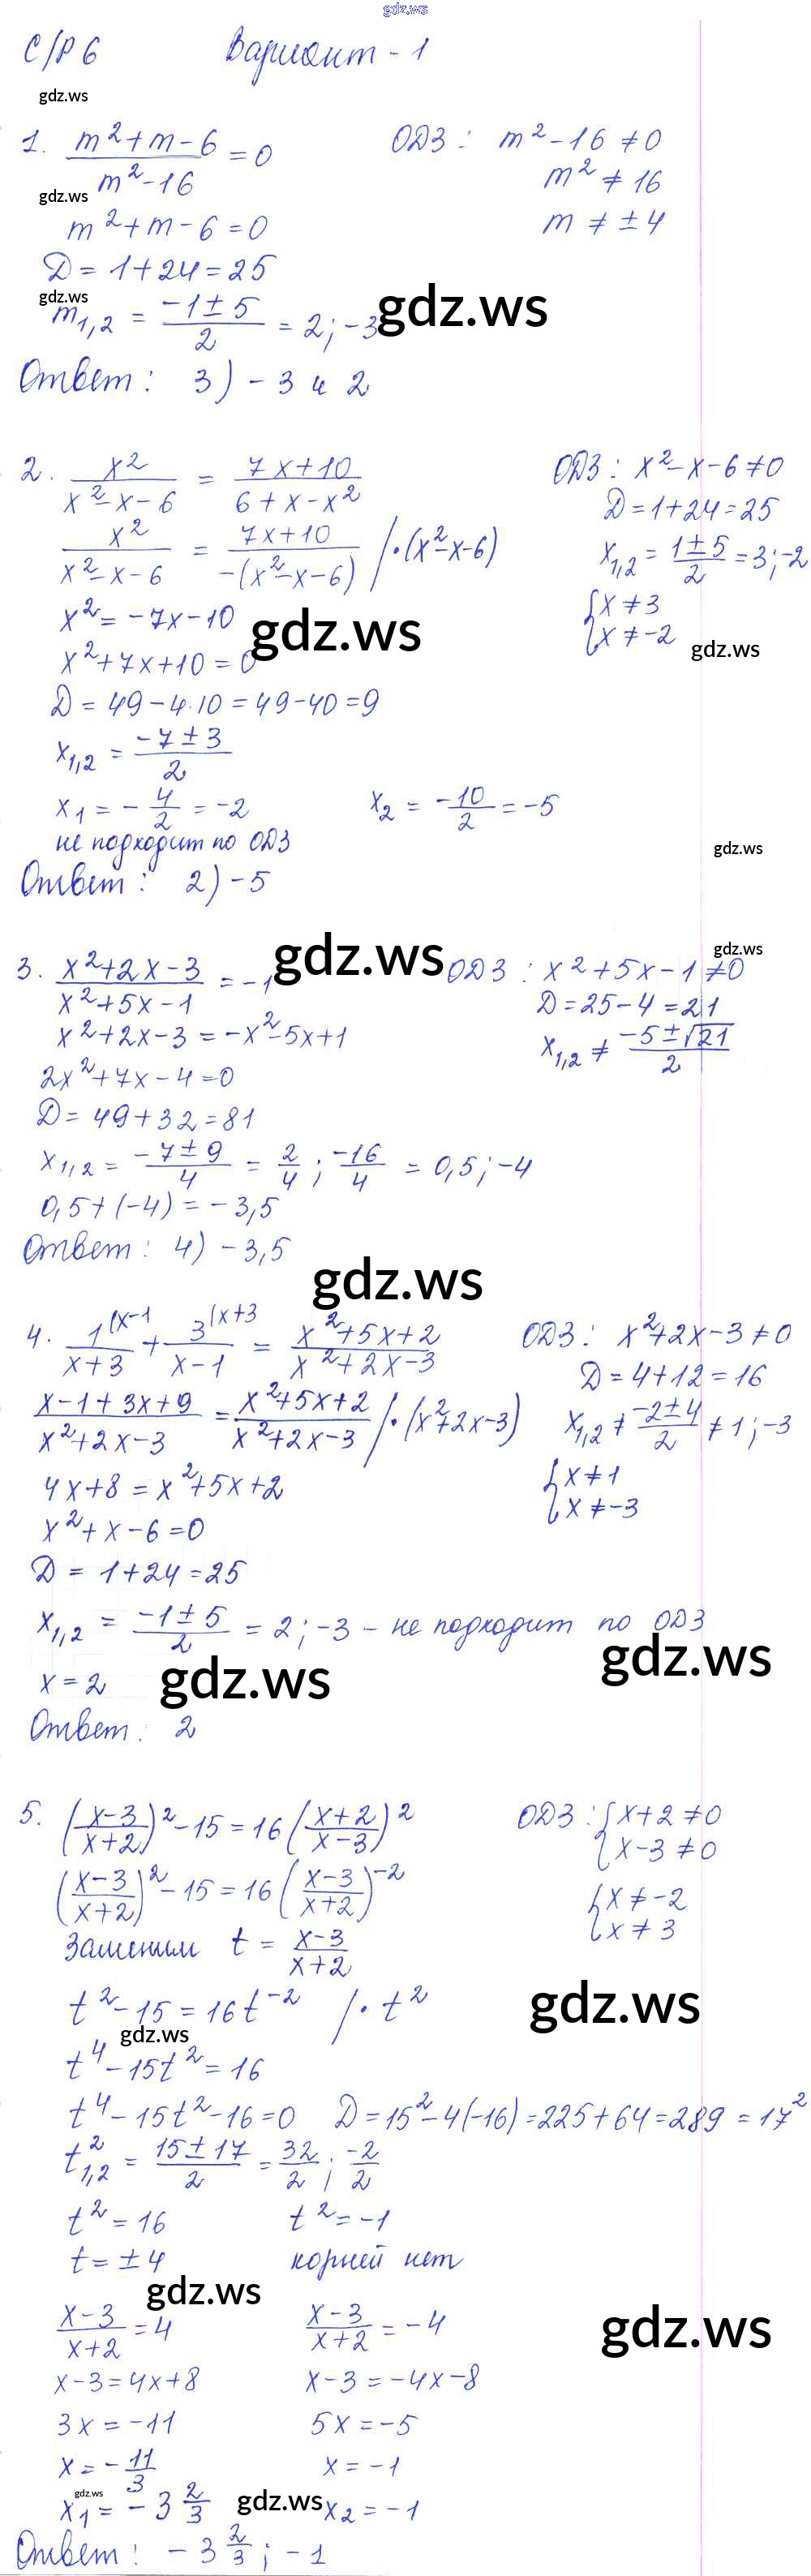 gdz.ws
С/Р 6 Вариант - 1
gdz.ws
1. (m²+m-6)/(m²-16) = 0 ОДЗ: m²-16 ≠ 0
gdz.ws
m² ≠ 16
m²+m-6=0 m ≠ ±4
Д = 1+24=25
gdz.ws
m₁,₂ = (-1±5)/2 = 2; -3 gdz.ws
Ответ: 3) -3 и 2
2. x²/(x²-x-6) = (7x+10)/(6+x-x²) ОДЗ: x²-x-6≠0
Д=1+24=25
x²/(x²-x-6) = (7x+10)/(-(x²-x-6)) /·(x²-x-6) x₁,₂ = (1±5)/2 = 3;-2
x² = -7x-10 gdz.ws {x≠3
{x≠-2 gdz.ws
x²+7x+10=0
Д = 49-4·10=49-40=9
x₁,₂ = (-7±3)/2
x₁ = -4/2 = -2 x₂ = -10/2 = -5
не подходит по ОДЗ gdz.ws
Ответ: 2) -5
3. (x²+2x-3)/(x²+5x-1) = -1 gdz.ws ОДЗ: x²+5x-1≠0 gdz.ws
Д=25-4=21
x²+2x-3=-x²-5x+1 x₁,₂ ≠ (-5±√21)/2
2x²+7x-4=0
Д= 49+32=81
x₁,₂ = (-7±9)/4 = 2/4; -16/4 = 0,5; -4
0,5+(-4) = -3,5
Ответ: 4) -3,5
gdz.ws
4. 1^(x-1/(x+3) + 3^(x+3/(x-1) = (x²+5x+2)/(x²+2x-3) ОДЗ: x²+2x-3≠0
Д=4+12=16
(x-1+3x+9)/(x²+2x-3) = (x²+5x+2)/(x²+2x-3) /·(x²+2x-3) x₁,₂ ≠ (-2±4)/2 ≠ 1;-3
4x+8 = x²+5x+2 {x≠1
{x≠-3
x²+x-6=0
Д = 1+24=25
x₁,₂ = (-1±5)/2 = 2; -3 - не подходит по ОДЗ
x=2 gdz.ws gdz.ws
Ответ: 2
5. ((x-3)/(x+2))²-15=16((x+2)/(x-3))² ОДЗ: {x+2≠0
{x-3≠0
((x-3)/(x+2))²-15=16((x-3)/(x+2))⁻² {x≠-2
{x≠3
Заменим t = (x-3)/(x+2)
t²-15=16t⁻² /·t² gdz.ws
gdz.ws
t⁴-15t²=16
t⁴-15t²-16=0 Д=15²-4(-16)=225+64=289=17²
t²₁,₂ = (15±17)/2 = 32/2; -2/2
t²=16 t²=-1
t=±4 корней нет
gdz.ws
(x-3)/(x+2)=4 (x-3)/(x+2)=-4 gdz.ws
x-3=4x+8 x-3=-4x-8
3x=-11 5x=-5
x=-11/3 x=-1
gdz.ws
x₁=-3 2/3 gdz.ws x₂=-1
Ответ: -3 2/3; -1